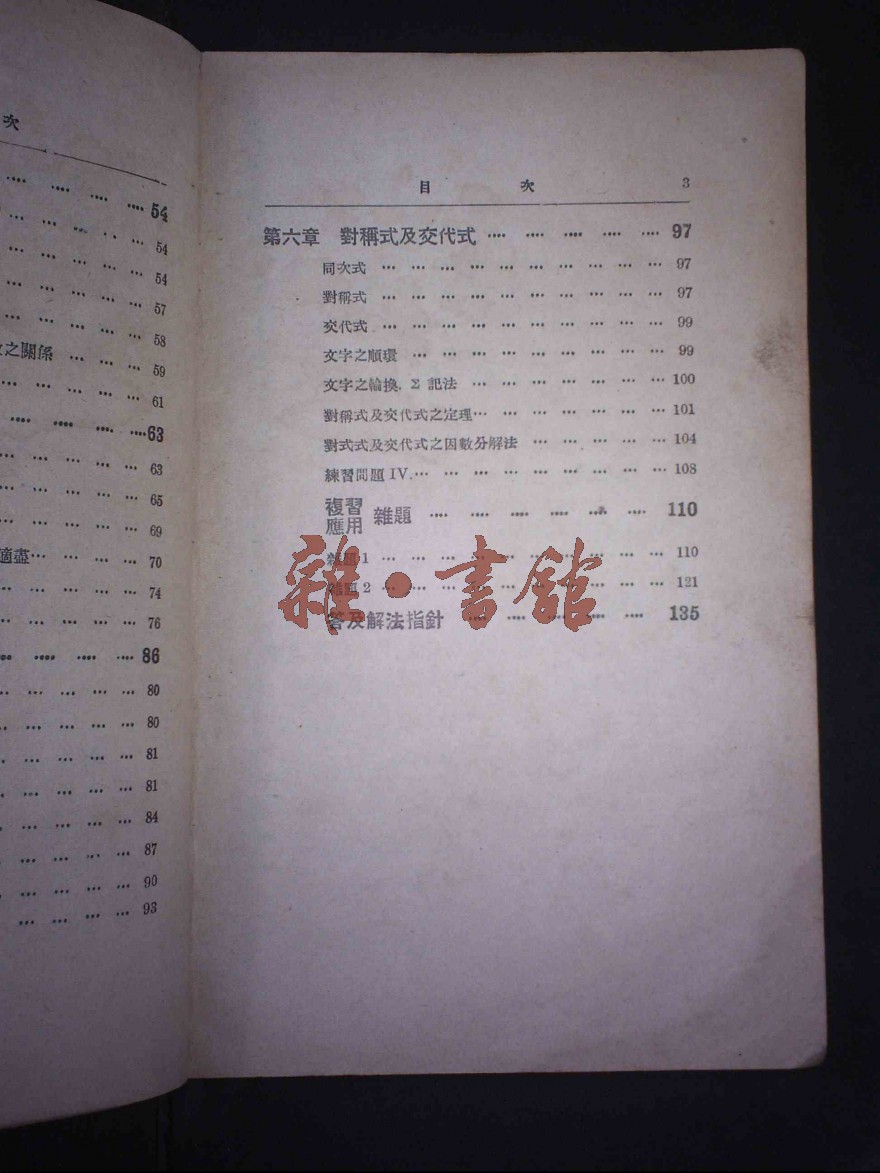 次
54
54
54
57
58
之關係 59
61
63
63
65
69
適盡 70
74
76
86
80
80
81
81
84
87
90
93
目 次 3
第六章 對稱式及交代式 97
同次式 97
對稱式 97
交代式 99
文字之順環 99
文字之輪換, Σ 記法 100
對稱式及交代式之定理 101
對式式及交代式之因數分解法 104
練習問題 IV. 108
複習
應用 雜題 110
雜題 1 110
雜題 2 121
答及解法指針 135
雜·書館